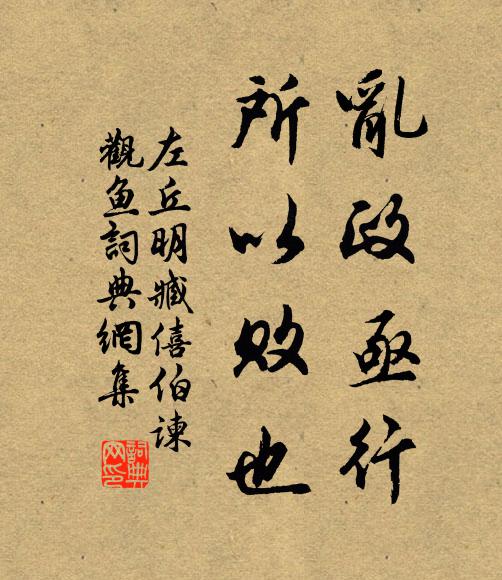 亂政亟行
所以败也
左丘明臧僖伯諫
觀鱼詞典網集
詞典网印